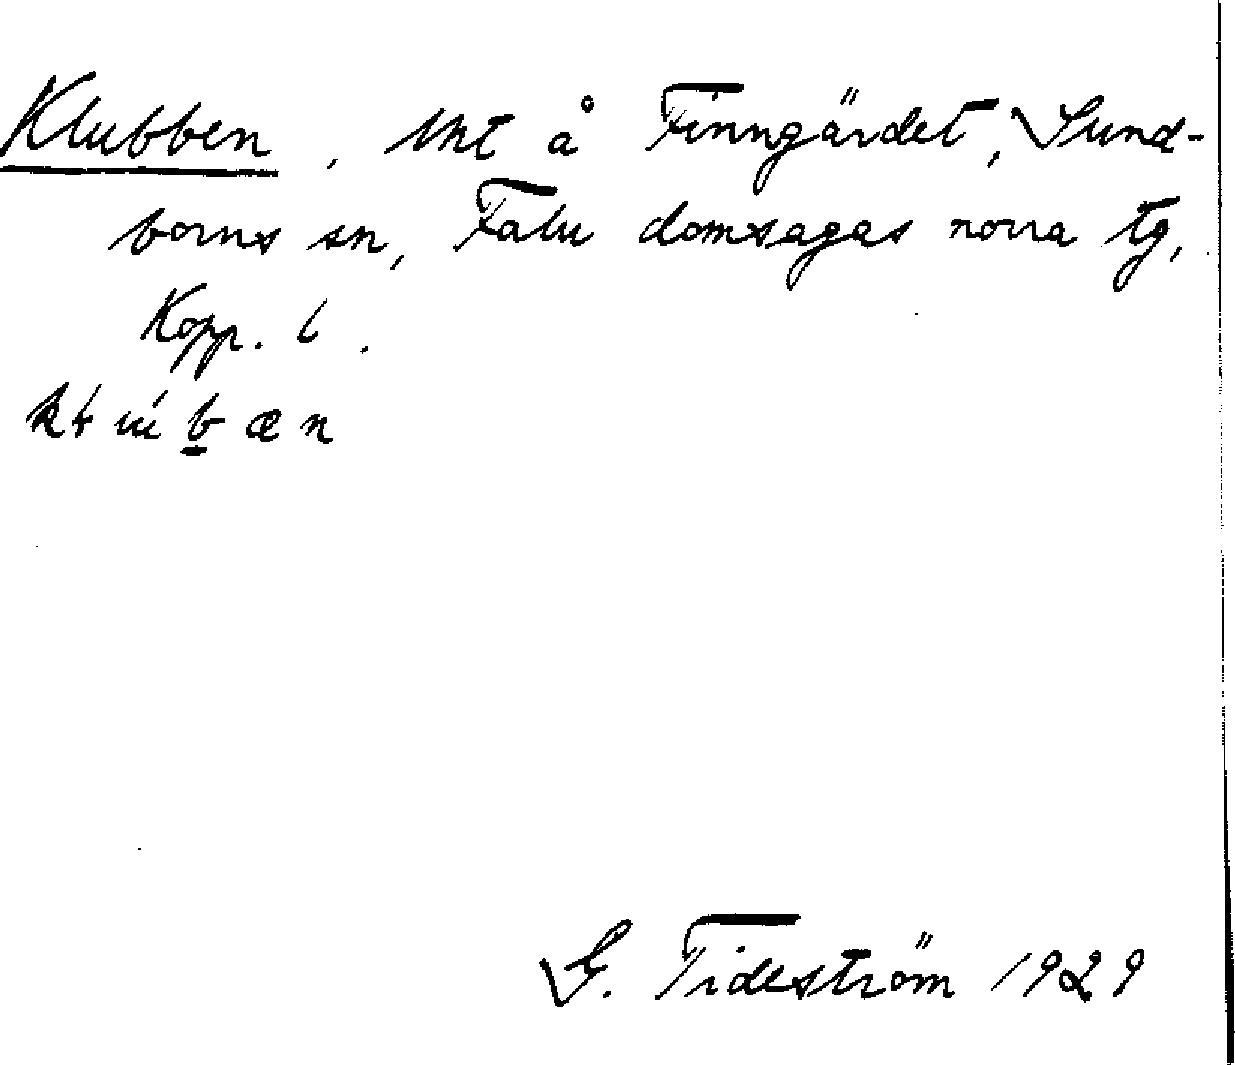 Klubben, tkt å Finngärdet, Sund-
borns sn, Falu domsagas norra tg,
Kopp. l.
G. Tideström 1929